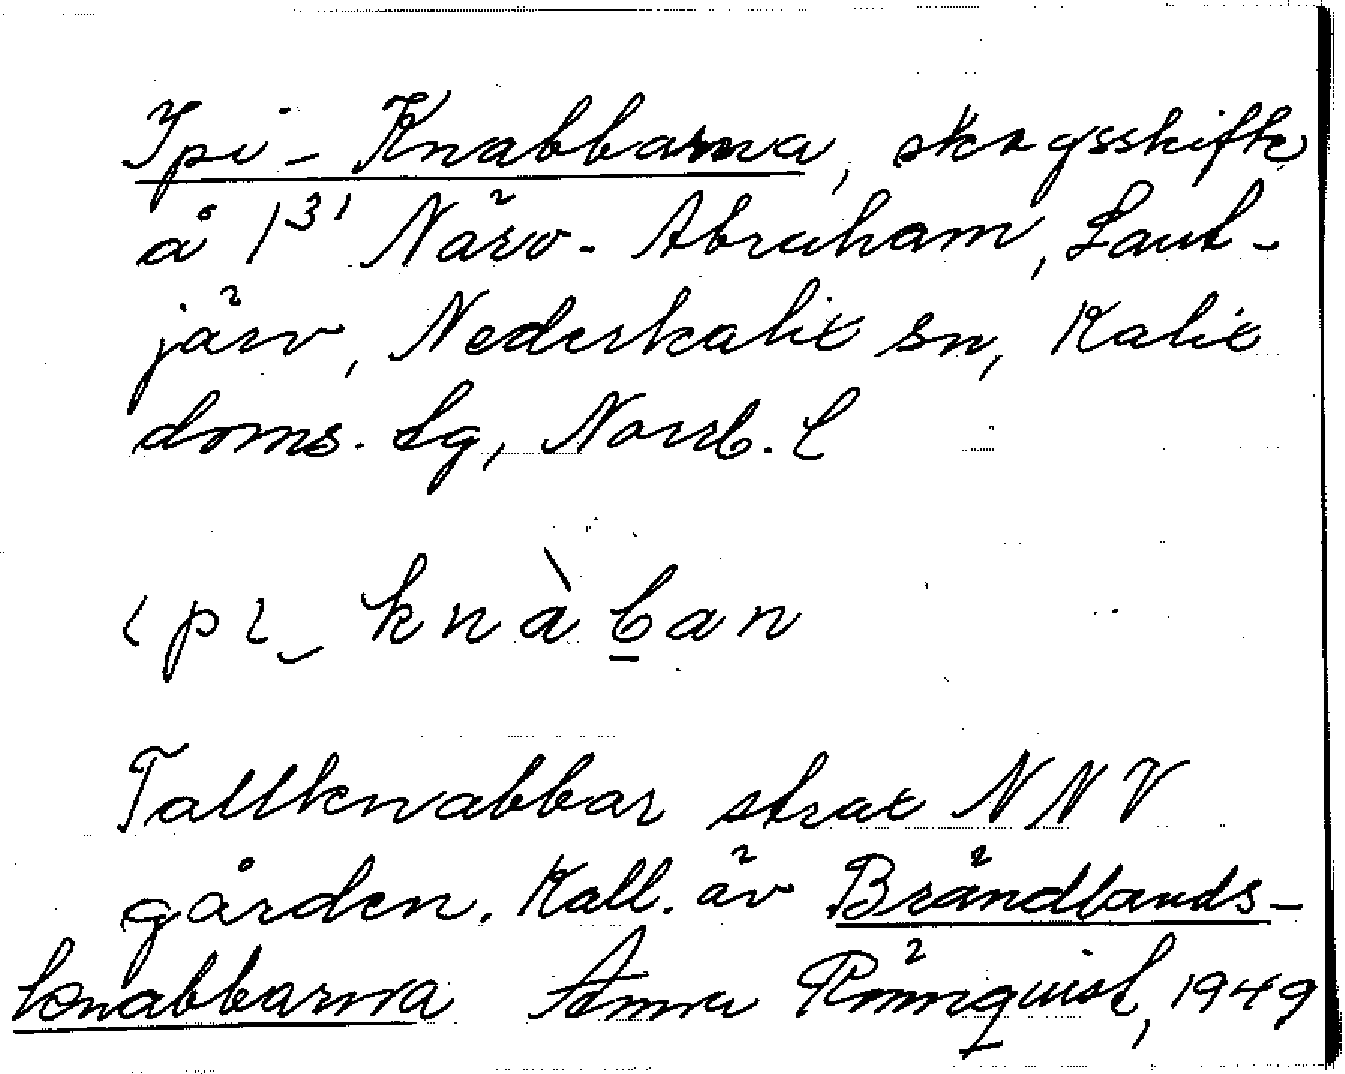 Ipi-Knabbarna, skogsskifte
å 1³¹ Närv-Abraham, Laut-
järv, Nederkalix sn, Kalix
doms. lg, Norrb. l
ɩpɩ_ knàban
Tallknabbar strax NNV
gården. Kall. äv Brändlands-
knabbarna Anna Rönnquist, 1949